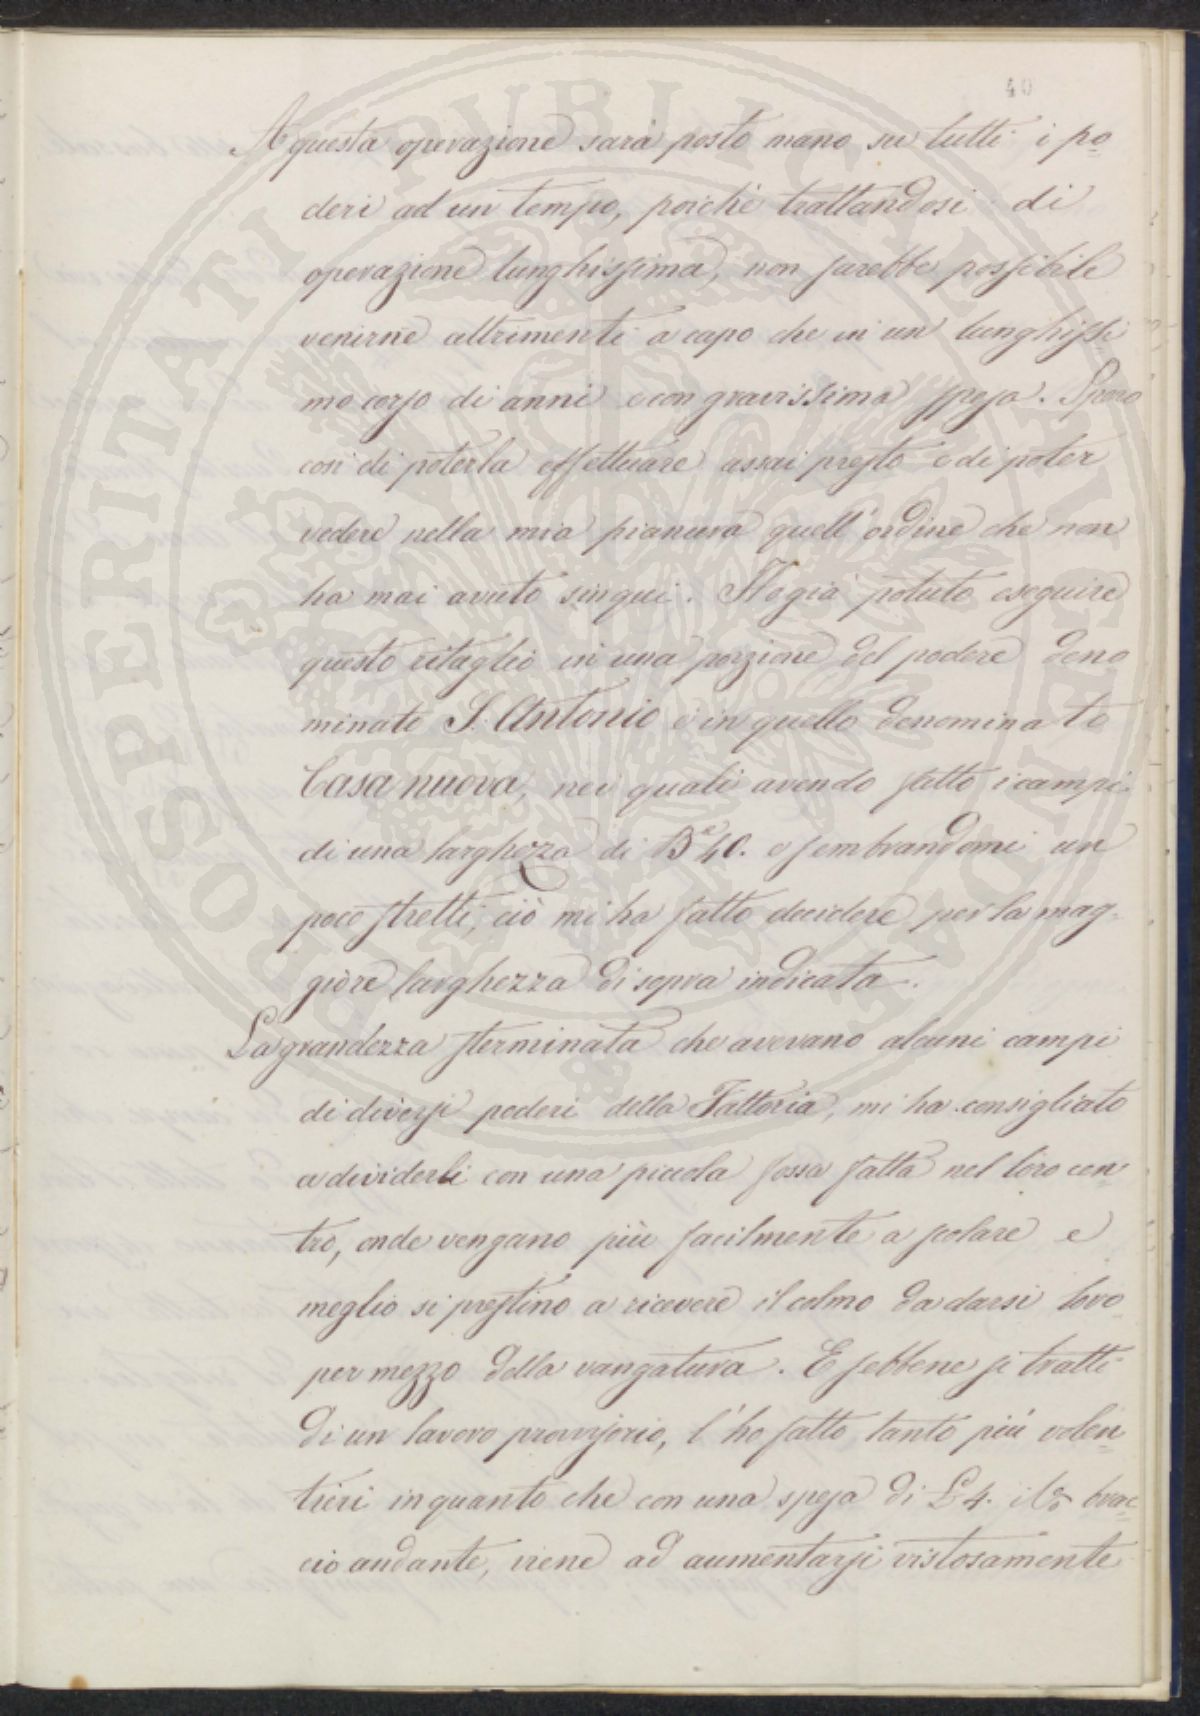 40
A questa operazione sarà posto mano su tutti i po
deri ad un tempo, poichè trattandosi di
operazione lunghissima, non sarebbe possibile
venirne altrimenti a capo che in un lunghissi
mo corso di anni e con gravissima spesa. Spero
così di poterla effettuare assai presto e di poter
vedere nella mia pianura quell'ordine che non
ha mai avuto sinqui. Ho già potuto eseguire
questo ritaglio in una porzione del podere deno
minato S. Antonio e in quello denominato
Casa nuova, nei quali avendo fatto i campi
di una larghezza di Ba 40. e sembrandomi un
poco stretti, ciò mi ha fatto decidere per la mag-
giore larghezza di sopra indicata.
La grandezza sterminata che avevano alcuni campi
di diversi poderi della Fattoria, mi ha consigliato
a dividerli con una piccola fossa fatta nel loro cen
tro, onde vengano più facilmente a scolare e
meglio si prestino a ricevere il colmo da darsi loro
per mezzo della vangatura. E sebbene si tratti
di un lavoro provvisorio, l'ho fatto tanto più volen
tieri in quanto che con una spesa di £ 4. il % brac
cio andante, viene ad aumentarsi vistosamente
PROSPERITATI PUBLICAE